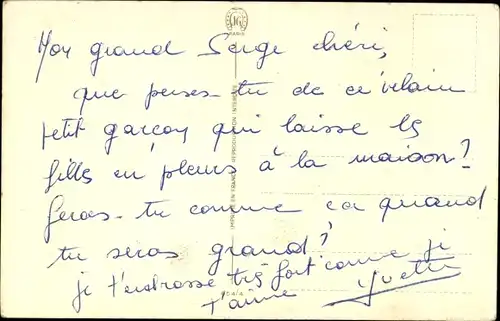 PARIS
Mon grand Serge chéri,
que penses-tu de ce vilain
petit garçon qui laisse les
filles en pleurs à la maison?
feras-tu comme ca quand
tu seras grand?
je t'embrasse très fort comme je
t'aime Yvette
IMPRIMÉ EN FRANCE REPRODUCTION INTERDITE